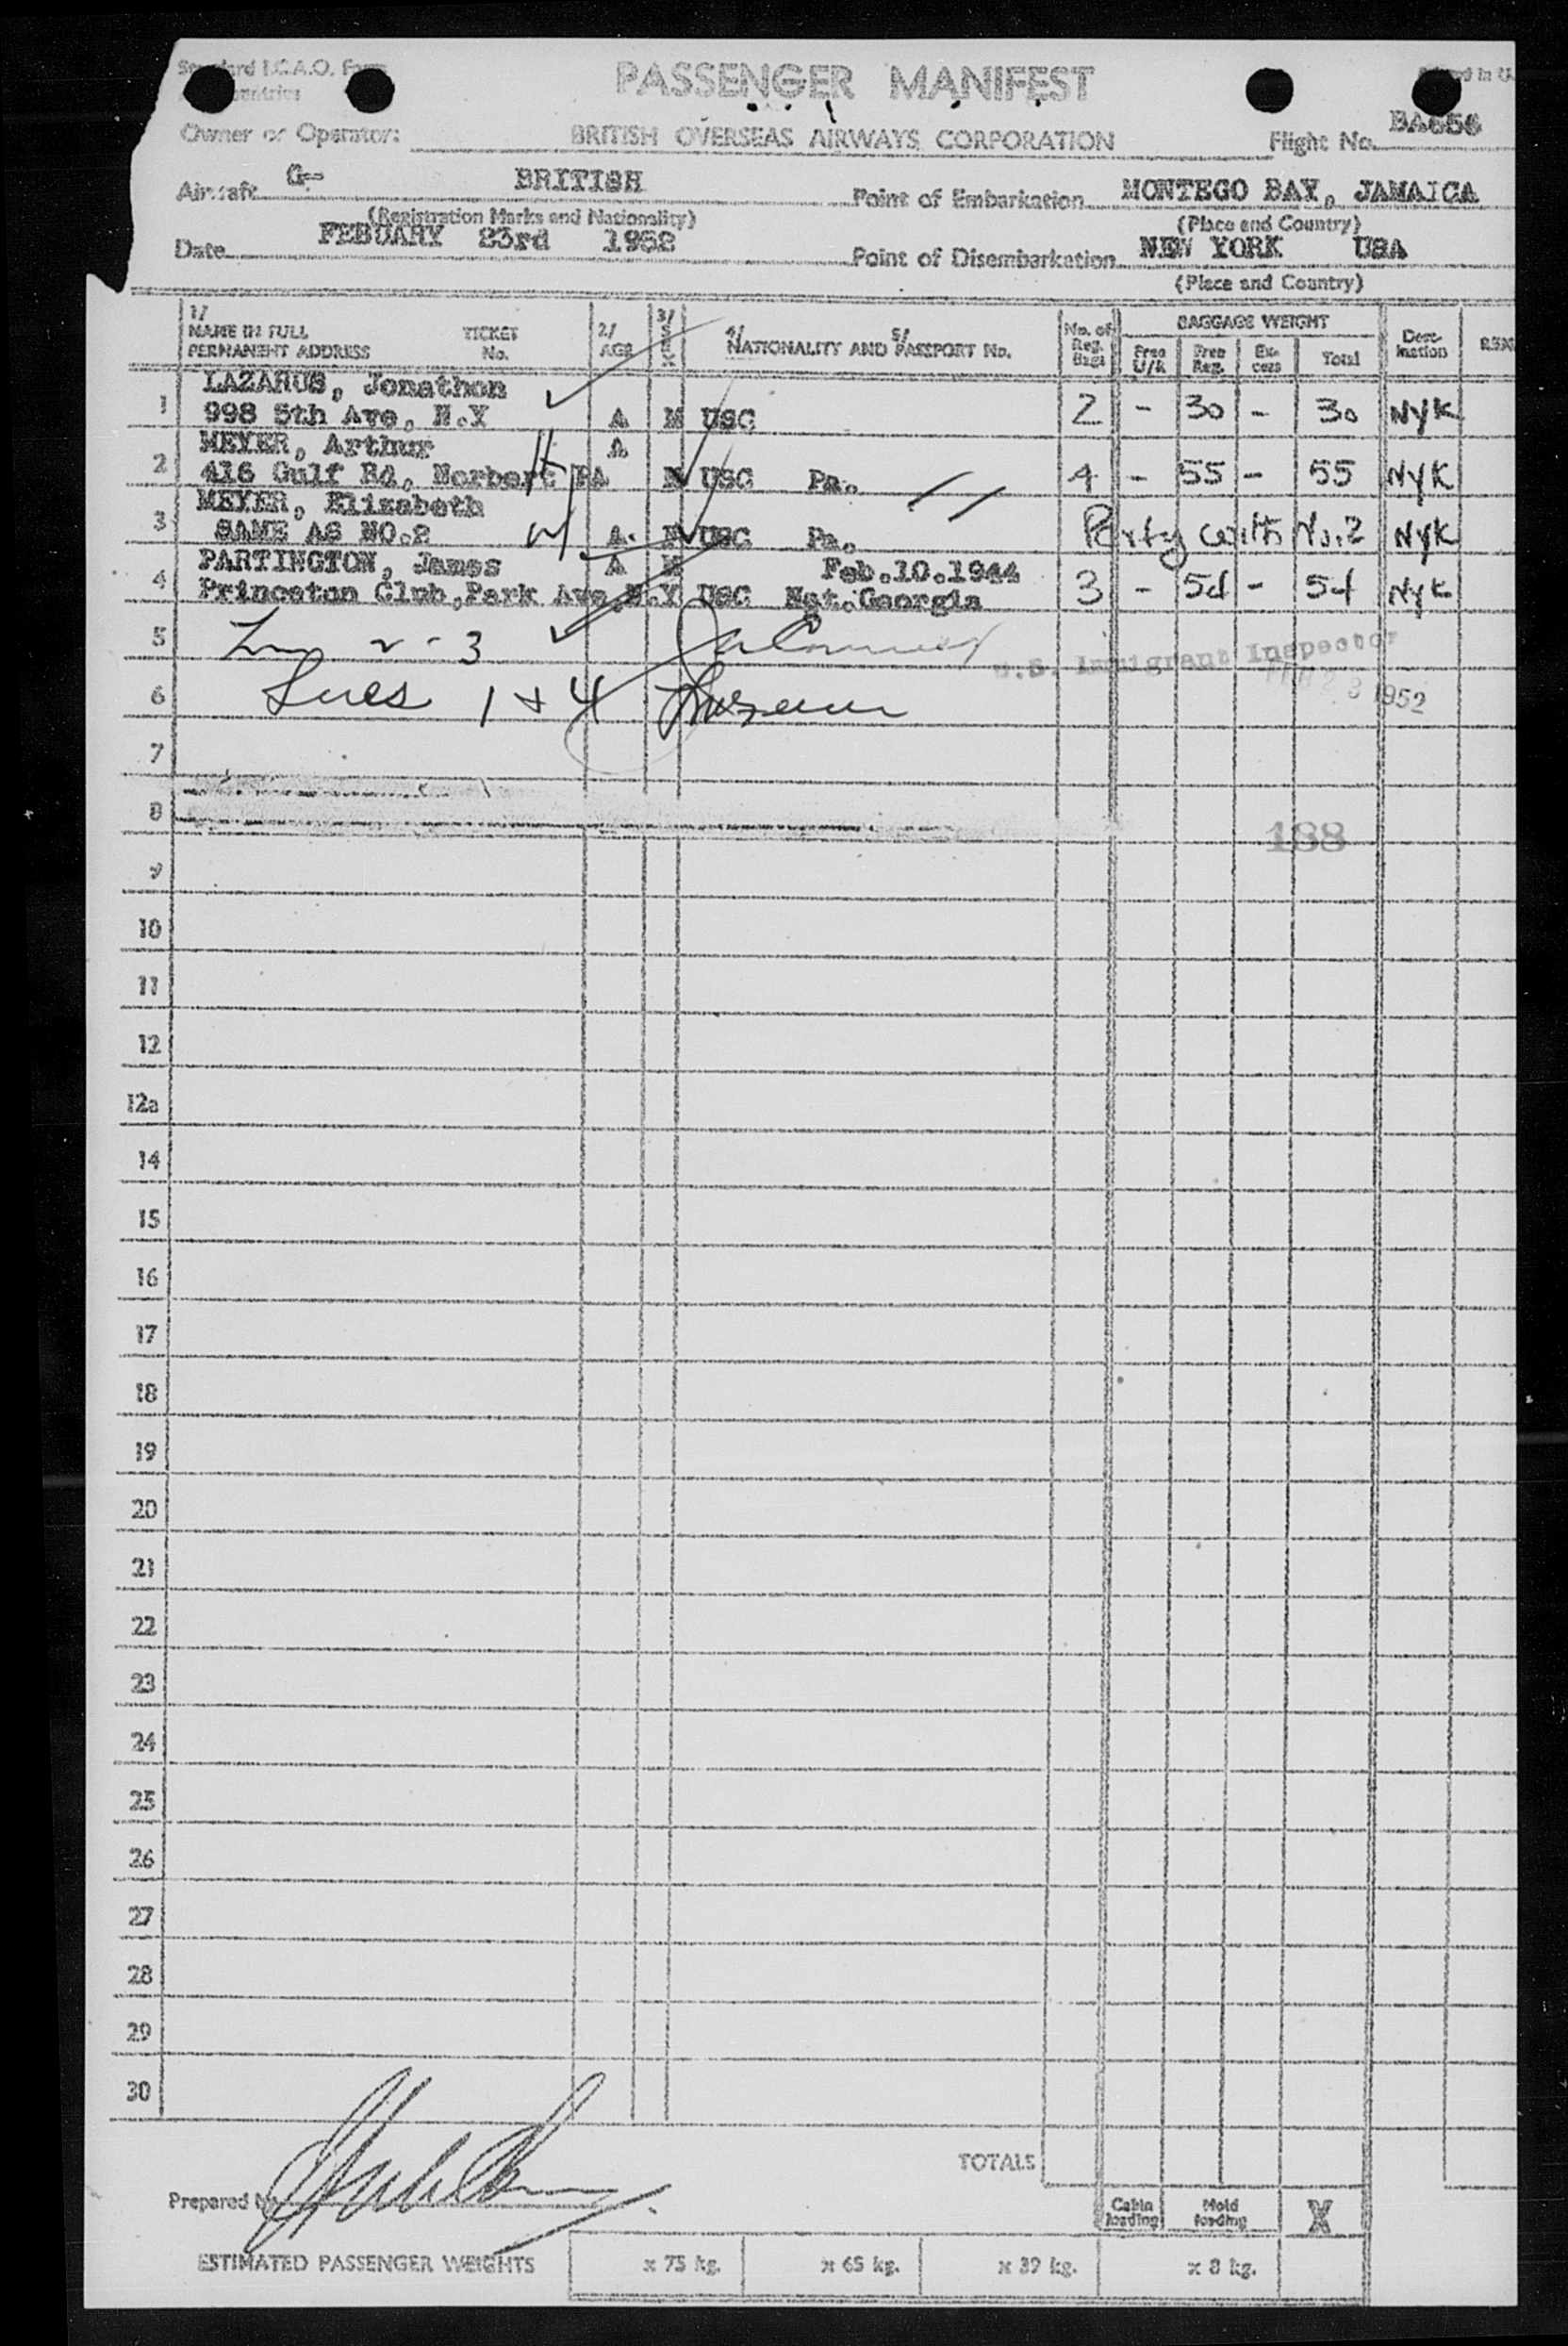 Standard I.C.A.O. Form
Countries
PASSENGER MANIFEST
Printed in U.
Owner or Operator: BRITISH OVERSEAS AIRWAYS CORPORATION Flight No. BA656
Aircraft G- BRITISH Point of Embarkation MONTEGO BAY, JAMAICA
(Registration Marks and Nationality) (Place and Country)
Date FEBUARY 23rd 1952 Point of Disembarkation NEW YORK USA
(Place and Country)
1/ NAME IN FULL PERMANENT ADDRESS TICKET No. 2/ AGE 3/ SEX 4/ 5/ NATIONALITY AND PASSPORT No. No. of Reg. Bags BAGGAGE WEIGHT Free U/K Free Reg. Ex-cess Total Dest-ination REM
LAZARUS, Jonathon
1 998 5th Ave, N.Y A M USC 2 - 30 - 30 NYK
MEYER, Arthur A
2 416 Gulf Rd, Norbert PA M USC Pa. 4 - 55 - 55 NYK
MEYER, Elizabeth
3 SAME AS NO.2 A. USC Pa. Party with No.2 NYK
PARTINGTON, James A M Feb.10.1944
4 Princeton Club,Park Ave,N.Y USC Nat.Georgia 3 - 54 - 54 NYK
5 2-3 U.S. Immigrant Inspector
6 Lines 1 + 4 FEB 23 1952
7
8
188
9
10
11
12
12a
14
15
16
17
18
19
20
21
22
23
24
25
26
27
28
29
30
TOTALS
Prepared by
Cabin loading Hold loading X
ESTIMATED PASSENGER WEIGHTS x 75 kg. x 65 kg. x 39 kg. x 8 kg.